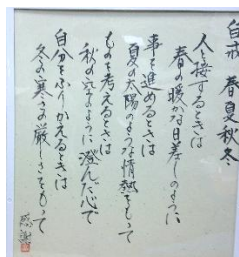 自戒 春夏秋冬
人と接するときは
春の暖かな日差しのように
事を進めるときは
夏の太陽のような情熱をもって
ものを考えるときは
秋の空のように澄んだ心で
自分をふりかえるときは
冬の寒さの厳しさをもって
感謝